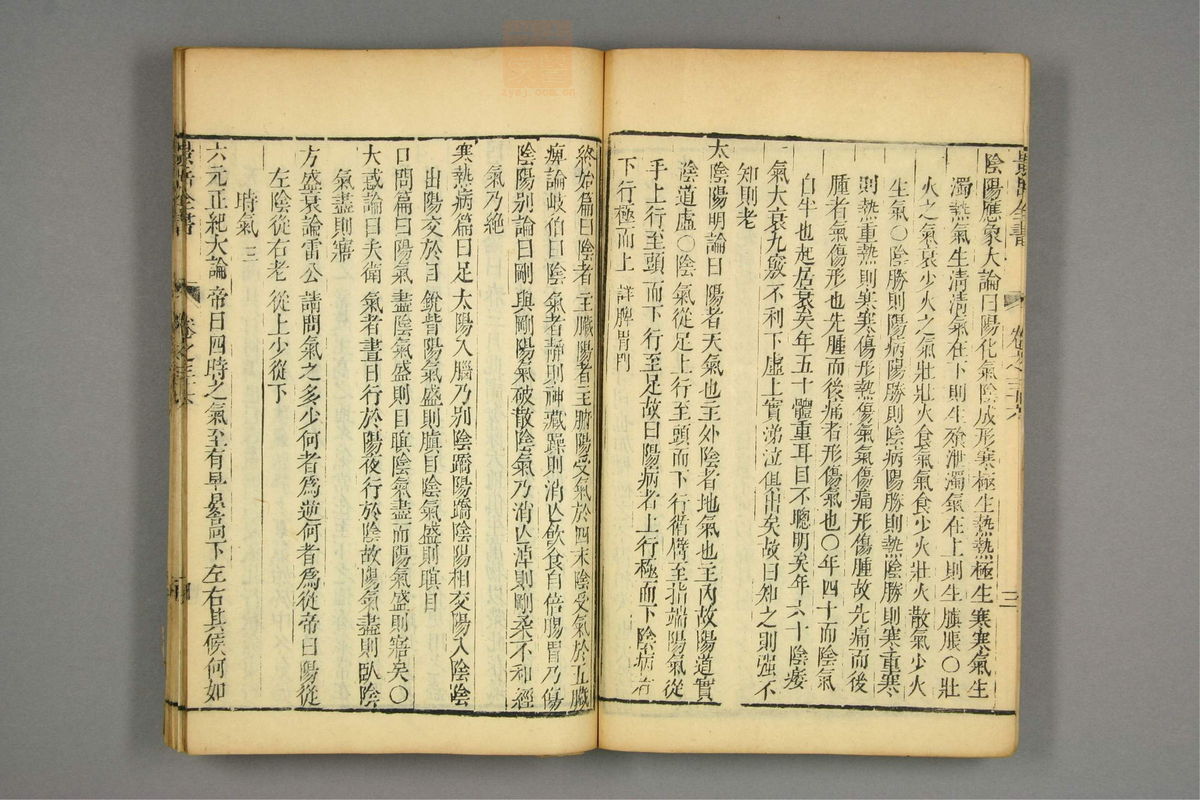 陰陽應象大論曰陽化氣陰成形寒極生熱熱極生寒寒氣生
濁熱氣生清清氣在下則生飱泄濁氣在上則生䐜脹○壯
火之氣衰少火之氣壯壯火食氣氣食少火壯火散氣少火
生氣○陰勝則陽病陽勝則陰病陽勝則熱陰勝則寒重寒
則熱重熱則寒寒傷形熱傷氣氣傷痛形傷腫故先痛而後
腫者氣傷形也先腫而後痛者形傷氣也○年四十而陰氣
自半也起居衰矣年五十體重耳目不聰明矣年六十陰痿
氣大衰九竅不利下虛上實涕泣俱出矣故曰知之則强不
知則老
太陰陽明論曰陽者天氣也主外陰者地氣也主內故陽道實
陰道虛○陰氣從足上行至頭而下行循臂至指端陽氣從
手上行至頭而下行至足故曰陽病者上行極而下陰病者
下行極而上 詳脾胃門
終始篇曰陰者主臟陽者主腑陽受氣於四末陰受氣於五臟
痺論岐伯曰陰氣者靜則神藏躁則消亡飲食自倍腸胃乃傷
陰陽別論曰剛與剛陽氣破散陰氣乃消亡淖則剛柔不和經
氣乃絕
寒熱病篇曰足太陽入腦乃別陰蹻陽蹻陰陽相交陽入陰陰
出陽交於目銳眥陽氣盛則瞋目陰氣盛則瞑目
口問篇曰陽氣盡陰氣盛則目瞑陰氣盡而陽氣盛則寤矣○
大惑論曰夫衛氣者晝日行於陽夜行於陰故陽氣盡則臥陰
氣盡則寤
方盛衰論雷公請問氣之多少何者爲逆何者爲從帝曰陽從
左陰從右老從上少從下
時氣 三
六元正紀大論帝曰四時之氣至有早晏高下左右其候何如
景岳全書
卷之
三
景岳全書
卷之